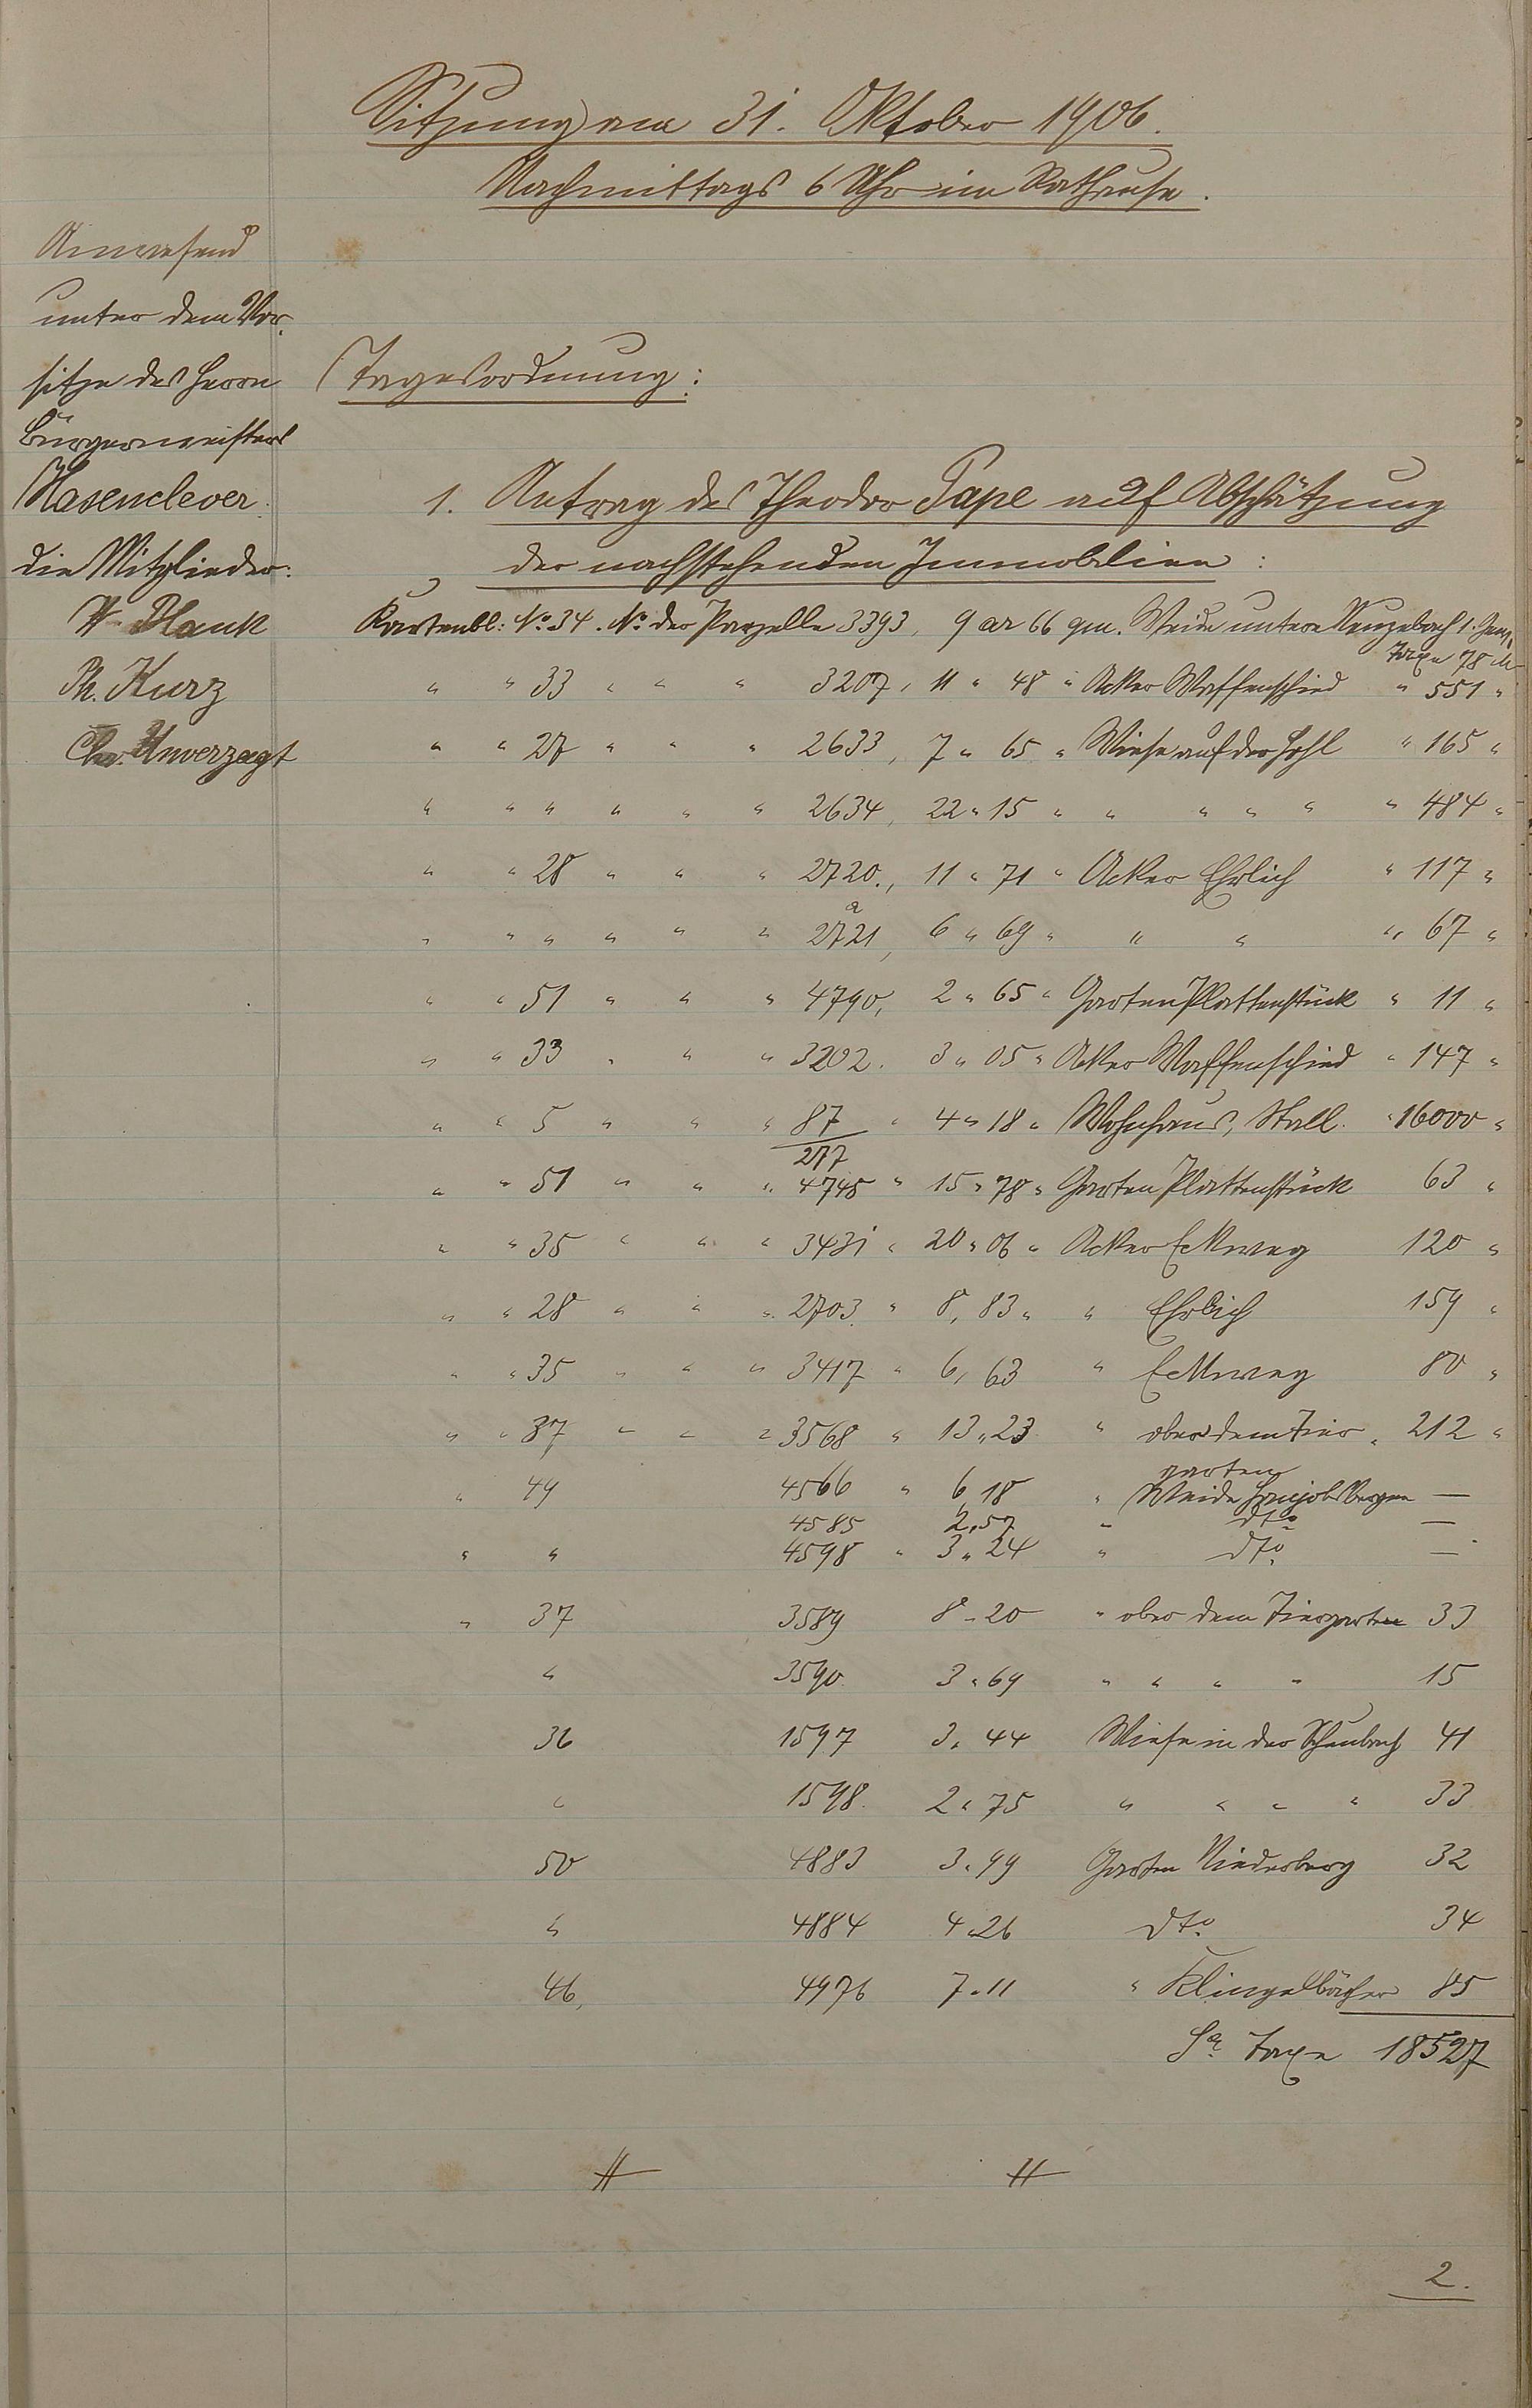 Sitzung am 31. Oktober 1906.
Nachmittags 6 Uhr im Rathause.
Anwesend
unter dem Vor-
sitze des Herrn
Bürgermeisters
Hasenclever.
die Mitglieder:
W. Blank
Ph. Kurz
Chr. Unverzagt
Tagesordnung:
1. Antrag des Theodor Pape auf Abschätzung
der nachstehenden Immobilien:
Kartenbl: No. 34. No. der Parzelle 3393, 9 ar 66 qm. Weide untere 1. Gew.
Taxe 78 M
" " 33 " " " 3207, 11 " 48 " Acker Waffenschied " 551 "
" " 27 " " " 2633, 7 " 65 " Wiese auf der Hohl " 165 "
" " " " " " 2634, 22 " 15 " " " " " " 484 "
" " 28 " " " 2720., 11 " 71 " Acker Ehrlich " 117 "
" " " " " " 2721a, 6 " 69 " " " " 67 "
" " 51 " " " 4790, 2 " 65 " Garten Plattenstück " 11 "
" " 33 " " " 3202. 3 " 05 " Acker Waffenschied " 147 "
" " 5 " " " 87/277 " 4 " 18 " Wohnhaus, Stall. " 16000 "
" " 51 " " " 4748 " 15 " 78 " Garten Plattenstück 63 "
" " 35 " " " 3431 " 20 " 06 " Acker Eckweg 120 "
" " 28 " " " 2703. " 8, 83 " " Ehrlich 159 "
" " 35 " " " 3417 " 6, 63 " Eckweg 80 "
" " 37 " " " 3568 " 13 " 23 " ober dem Tier- " 212 "
garten
" 49 4566 " 6, 18 " Weide —
4585 2, 57 " dto —
" " 4598 " 3 " 24 " dto. —
" 37 3589 8 " 20 " ober dem Tiergarten 33
" 3590. 3 " 69 " " " " 15
36 1597 3, 44 Wiese in der 41
" 1598. 2 " 75 " " " " 33
50 4883 3 " 99 Garten Niederberg 32
" 4884 4 " 26 dto. 34
46, 4976 7 " 11 " Klingelbächer 85
Sa. Taxe 18527
2.